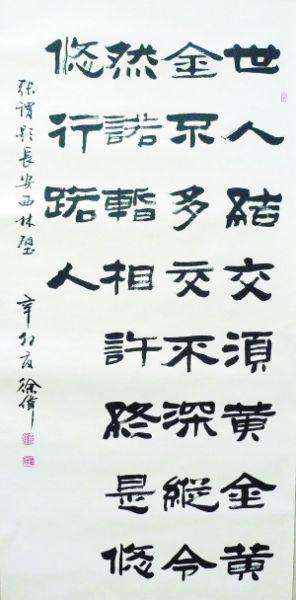 世人結交須黃金黃
金不多交不深縱令
然諾暫相許終是悠
悠行路人
張謂題長安西林壁
辛卯夏徐偉